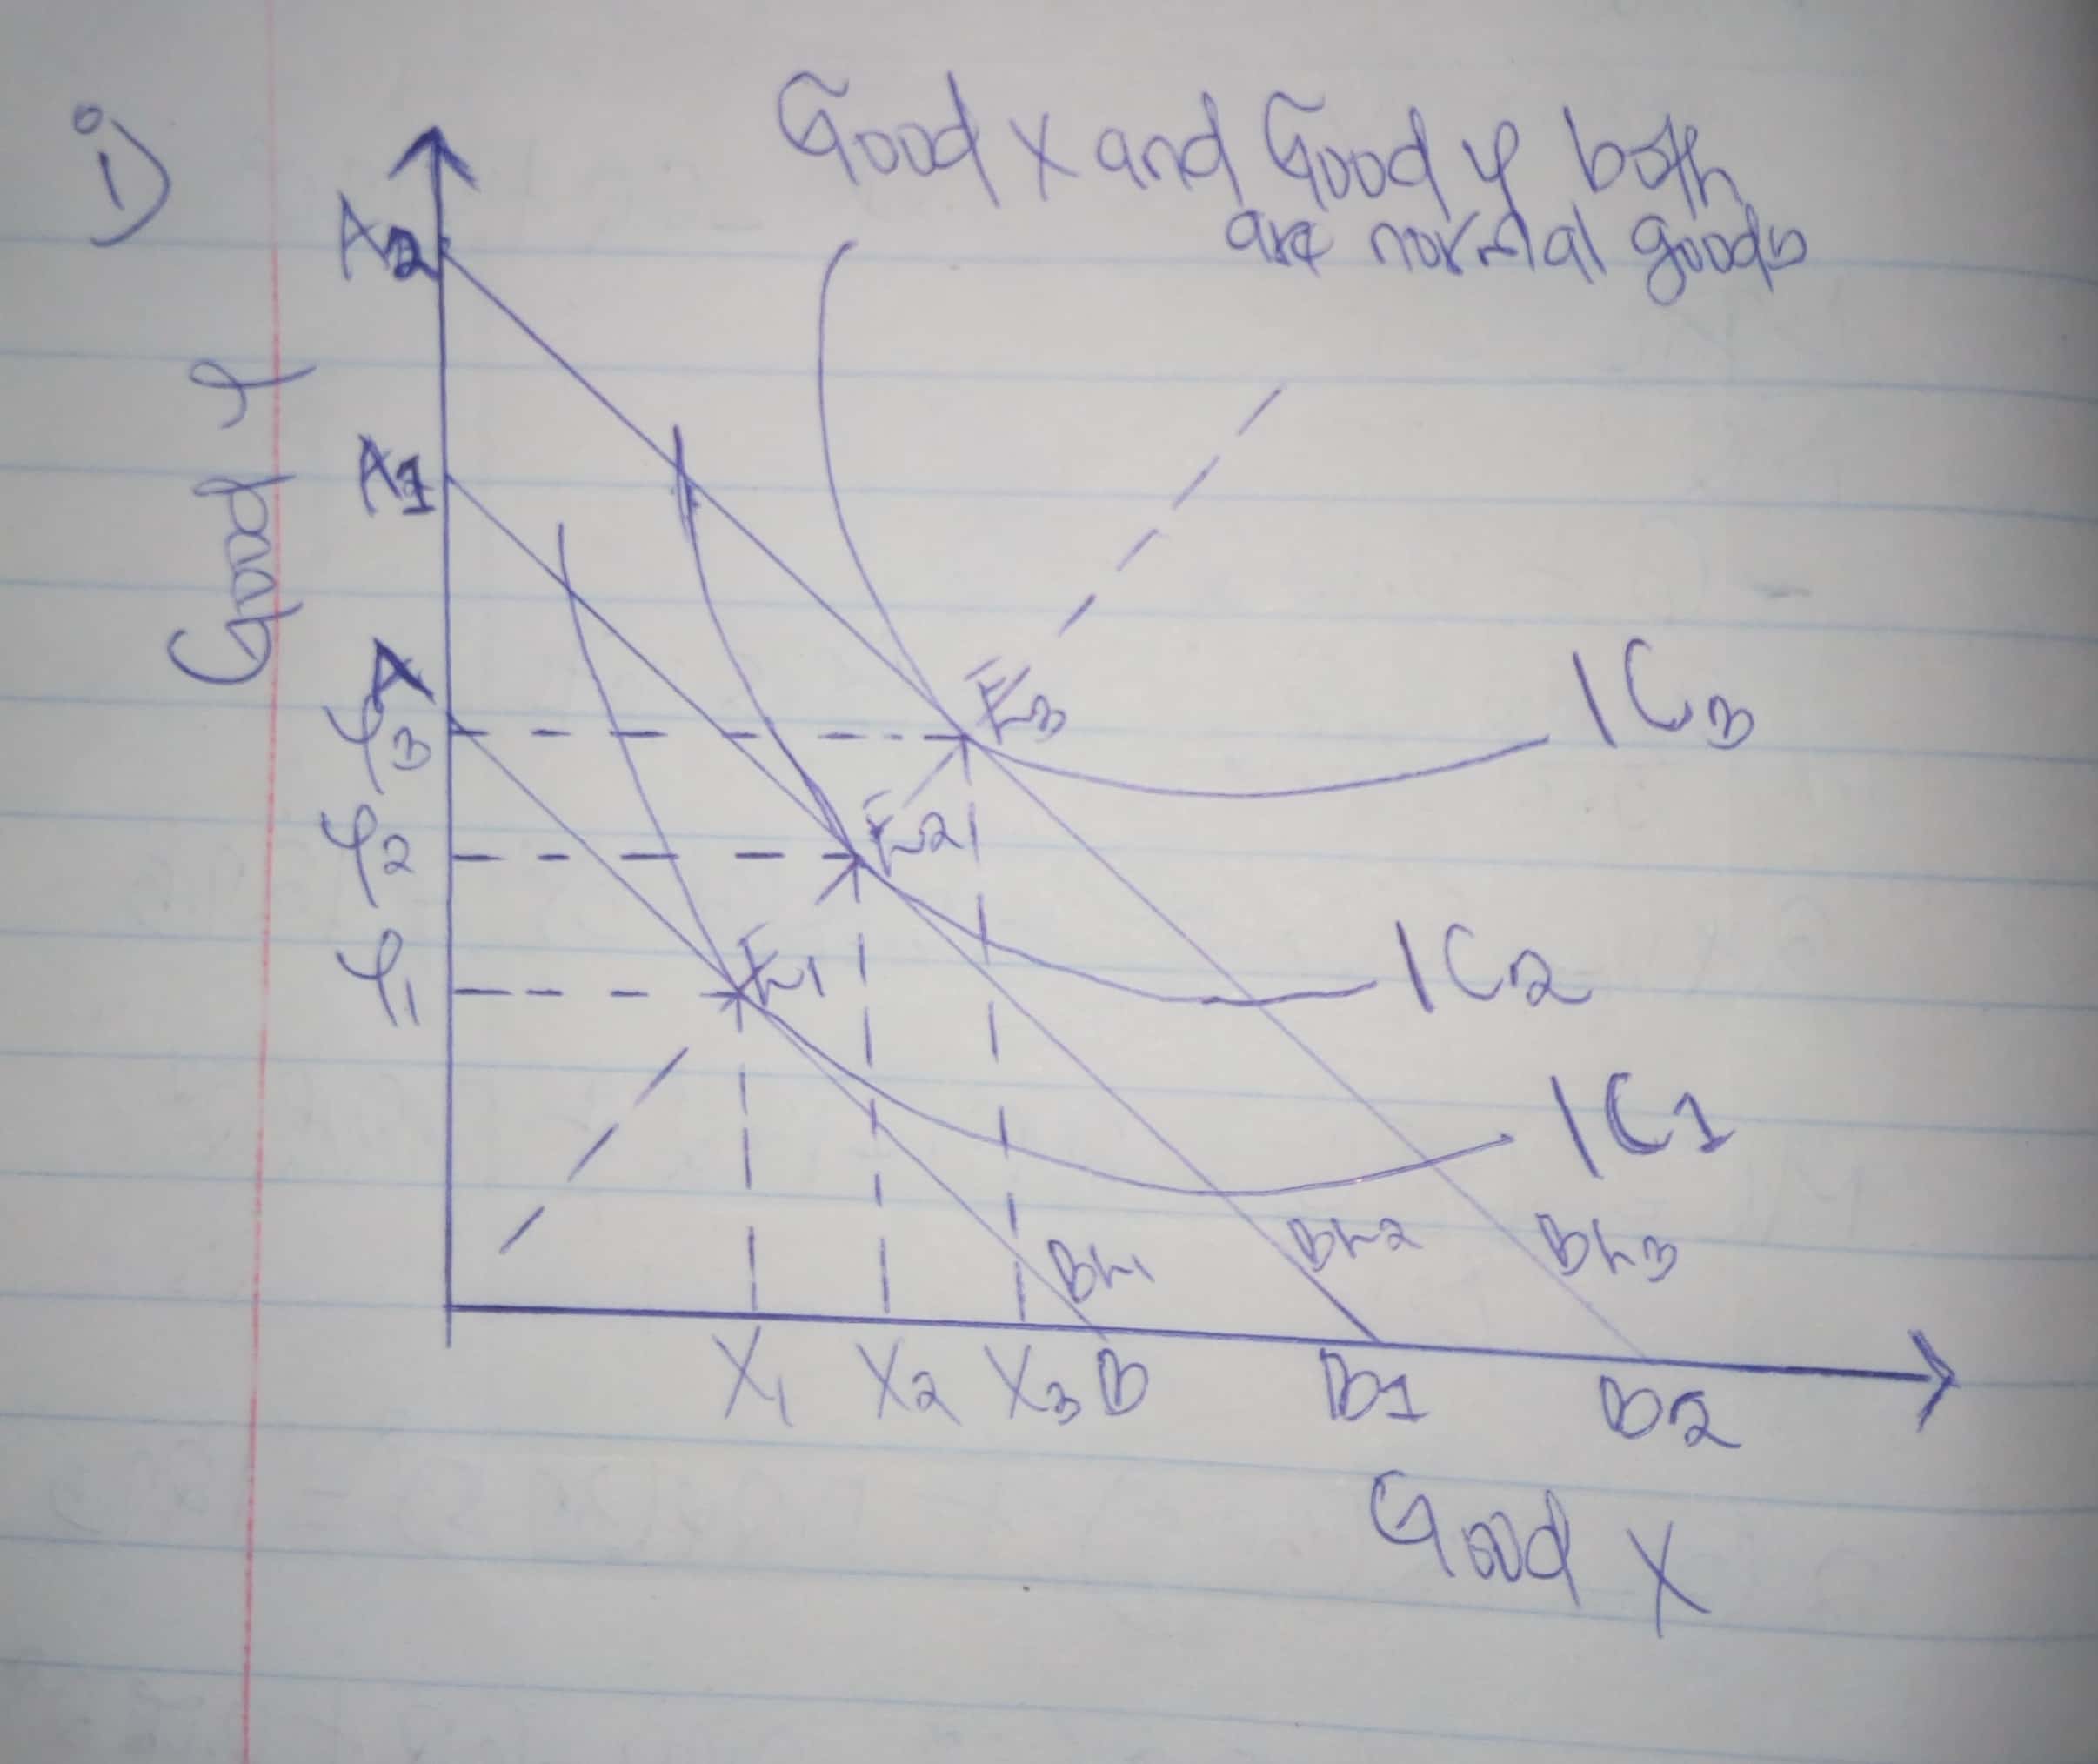 i)
Good X and Good Y both
are normal goods
A2
Good Y
A1
A
Y3
E3
IC3
Y2
E2
IC2
Y1
E1
IC1
BL1
BL2
BL3
X1 X2 X3 B B1 B2
Good X